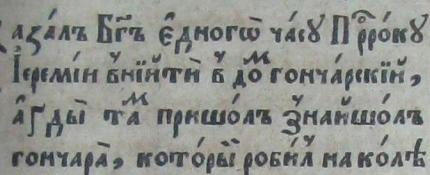 азалъ Бг҃ъ є҆дногѡ̀ ча́сꙋ Прⷪ҇ро́кꙋ
І҆ереми́и в̾нїйтѝ в̾ доⷨ гонча́рскїй,
а҆ґды̀ таⷨ пришо́лъ знайшо́лъ
гончара̀, кото́рый роби́л̾ на колѣ